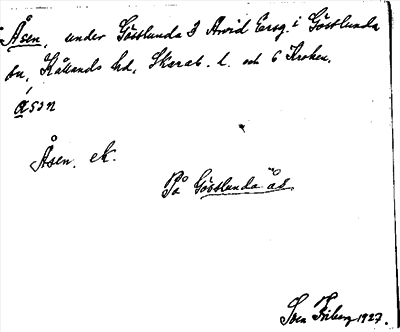 Åsen, under Göstlunda 3 Arvid Larsg. i Göstlunda
sn, Kållands hd, Skarab. l. och 6 Kroken.
åsən
Åsen. ek.
På Göstlunda ås
Sven Friberg 1927.